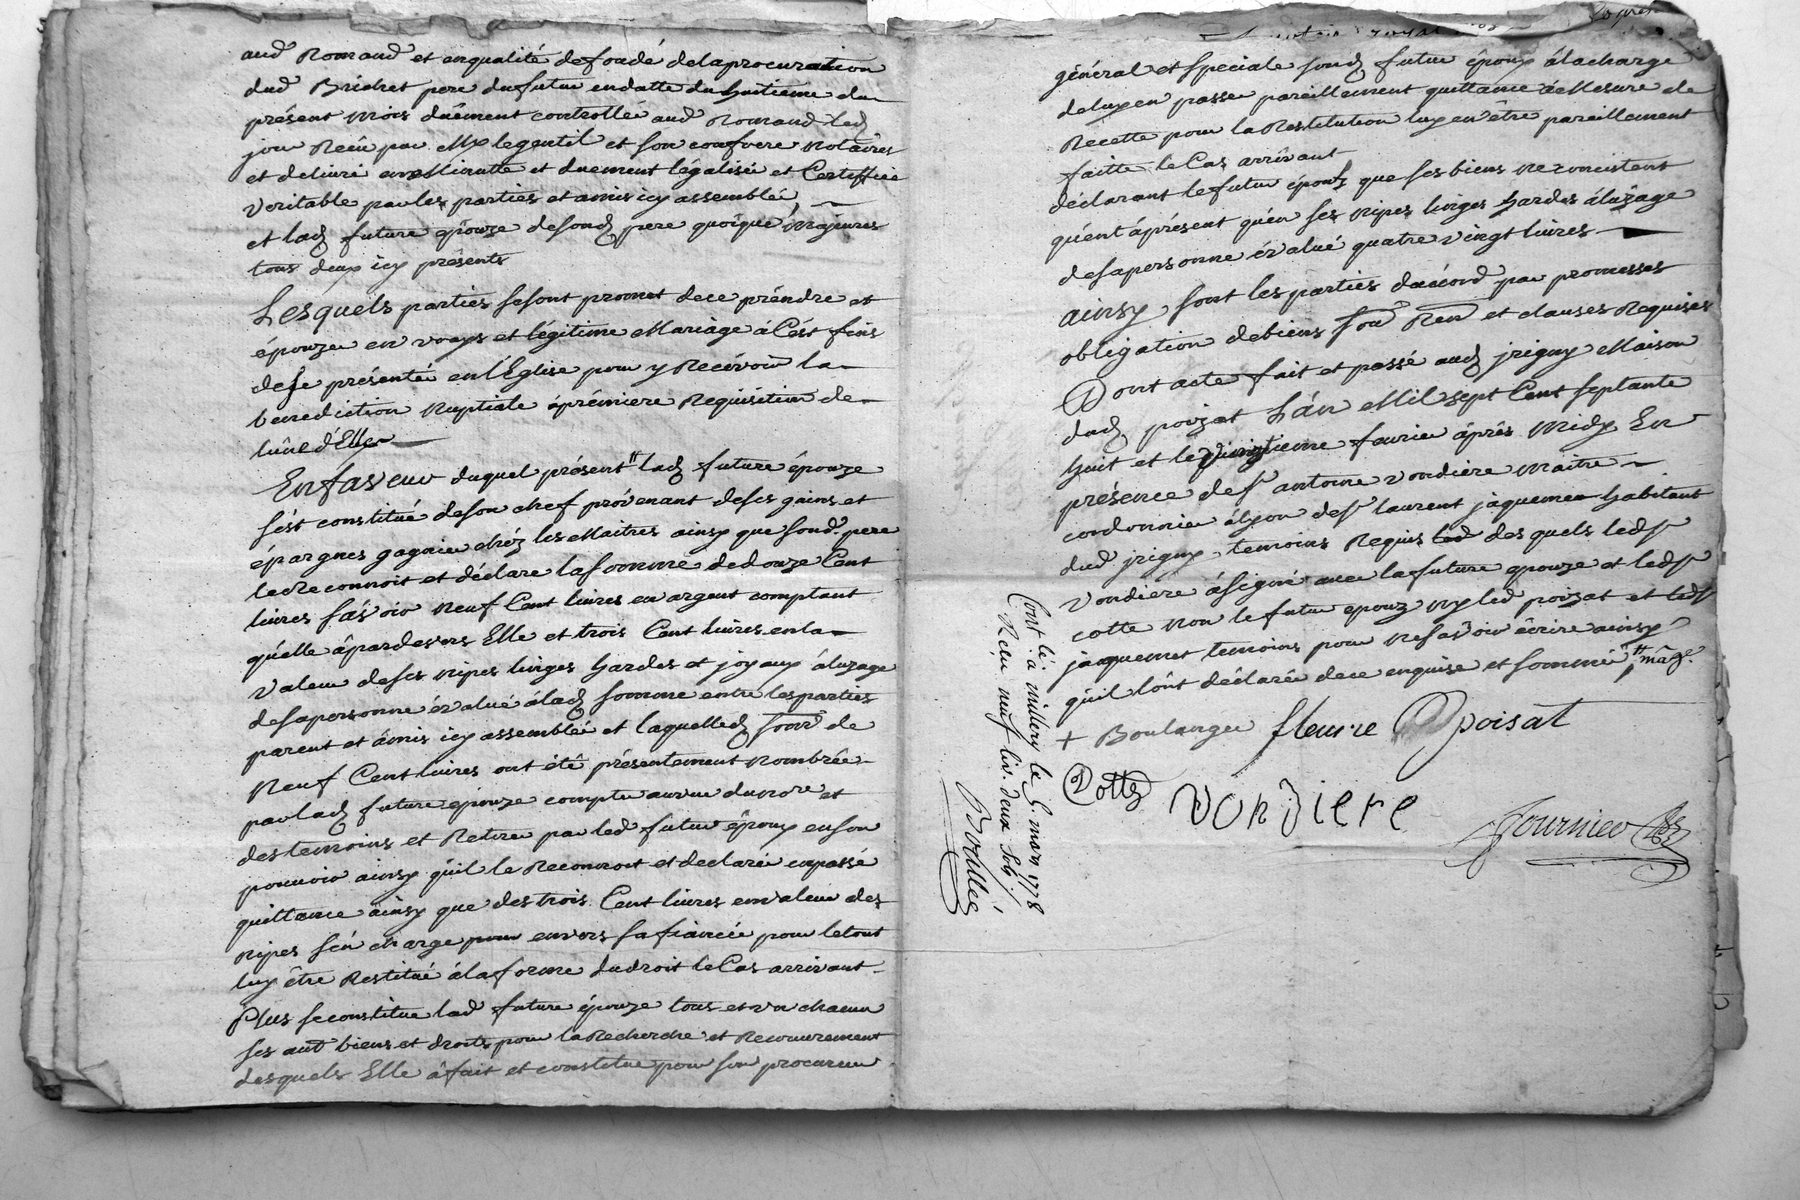 aud Romand et enqualité defondé delaprocuration
dud Brichet pere dufutur endatte du huitiéme du
présent mois düement controllé aud Romand led
jour Recûe par Me legentil et son confrere Notaires
et delivré en Minutte et duement légalisée et Certiffiée
veritable parles parties et amis icy assemblé,
et lad future épouze desond pere quoique Majeures
tous deux icy présents
Lesquels parties sesont promet dece préndre et
épouzer en vrays et légitime Mariage á Cést fins
dese présentér enl'Eglise pour y Recévoir la
benediction Nuptiale ápremiere Requisition de
lûne d'Elles
Enfaveur duquel présent lad future épouze
sést constitué deson chef provenant deses gains et
épargnes gagnier chéz les Maitres ainsy que sond pere
le Reconnoit et déclare lasomme dedouze Cent
livres sás̈voir Neuf Cent livres en argent comptant
quélle âpardevers Elle et trois Cent livres enla
valeur deses nipes linges hardes et joyaux áluzage
desapersonne évalué álad somme entre lesparties
parent et ámis icy assemblée et laquelled somme de
Neuf Cent livres ont été présentement Nombrée
parlad future épouze compter aurue dunore et
des temoins et Retirer par led futur époux enson
pouvoir ainsy quil le Reconnoit et declarée enpassé
quittance áinsy que des trois Cent livres envaleur des
nipes sén charge pour envers sa fiancée pour letout
luy être Restitué álaforme dudroit le Cas arrivant
Plus seconstitue lad future épouze tous et un chacun
ses aut biens et droits pour la Recherche et Recouvrement
desquels Elle áfait et constitue pour son procureur
général et speciale sond futur époux álacharge
deluy en passer pareillement quittance áMesure de
Recette pour la Restitution luy en être pareillement
faitte le Cas arrivant
déclarant le futur époux que ses biens ne concistent
quént áprésent quén ses nipes linges hardes áluzage
desapersonne évalué quatre vingt livres
ainsy sont les parties daccord par promesses
obligation debiens soum Ren et clauses Requises
Dont acte fait et passé aud jrigny Maison
dud poizat L'án Mil sept Cent septante
huit et le vingtieme fevrier áprés midy En
présence de sr antoine vondiére maitre
cordonnier ályon de sr laurent jaquemet habitant
dud jrigny temoins Requis des quels led sr
vondiére ásigné avec lafuture epouze et led sr
cotte non le futur epoux ny led poizat et led sr
jaquemet temoins pour ne savoir écrire ainsy
quil lônt déclarée dece enquise et sommé
+ Boulanger fleurie poisat
Cotte vondiere
fournier
Cont lé a millery le 5. mars 1778
Reçu neuf liv. deux sols